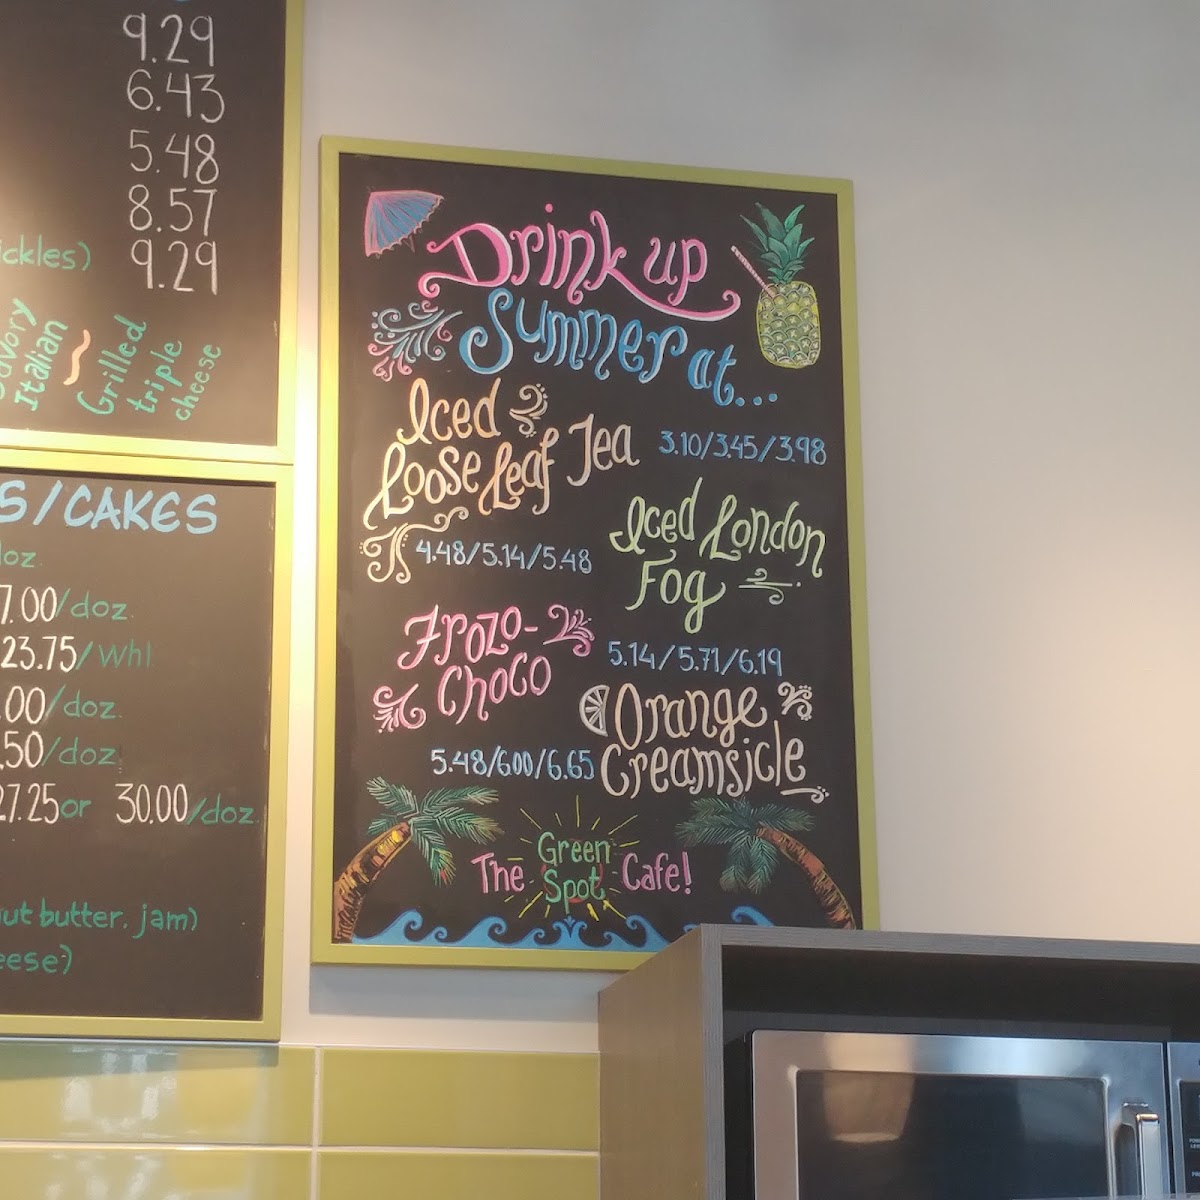 9.29
6.43
5.48
8.57
9.29
Italian
Grilled
triple
cheese
/CAKES
7.00/doz.
23.75/whl
.00/doz.
.50/doz.
27.25 or 30.00/doz.
butter, jam)
Drink up
Summer at...
Iced
Loose Leaf Tea 3.10/3.45/3.98
Iced London
Fog
4.48/5.14/5.48
Frozo-
Choco
5.14/5.71/6.19
Orange
Creamsicle
5.48/6.00/6.65
The Green Spot Cafe!